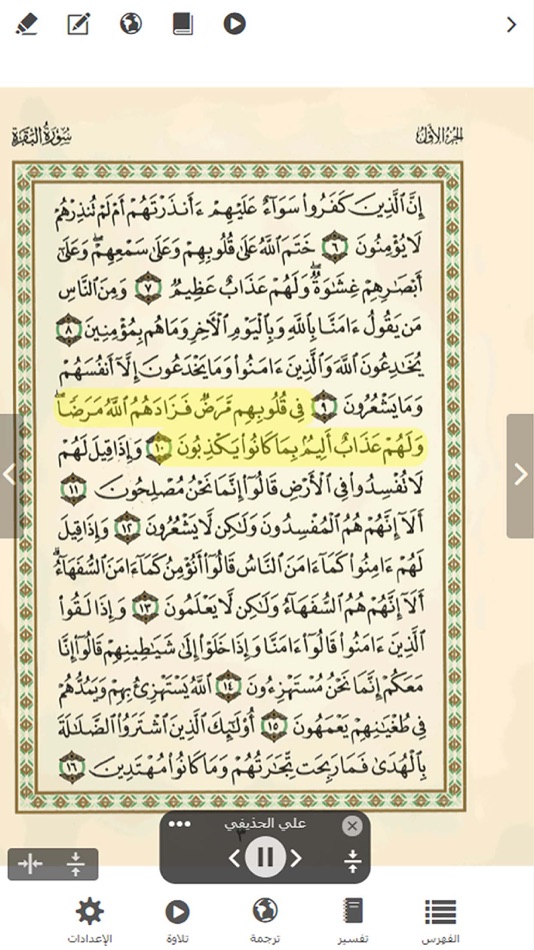 سُورَةُ البَقَرَةِ
الجُزءُ الأَوَّلُ
إِنَّ ٱلَّذِينَ كَفَرُوا۟ سَوَآءٌ عَلَيْهِمْ ءَأَنذَرْتَهُمْ أَمْ لَمْ تُنذِرْهُمْ
لَا يُؤْمِنُونَ ٦ خَتَمَ ٱللَّهُ عَلَىٰ قُلُوبِهِمْ وَعَلَىٰ سَمْعِهِمْ ۖ وَعَلَىٰٓ
أَبْصَـٰرِهِمْ غِشَـٰوَةٌ ۖ وَلَهُمْ عَذَابٌ عَظِيمٌ ٧ وَمِنَ ٱلنَّاسِ
مَن يَقُولُ ءَامَنَّا بِٱللَّهِ وَبِٱلْيَوْمِ ٱلْـَٔاخِرِ وَمَا هُم بِمُؤْمِنِينَ ٨
يُخَـٰدِعُونَ ٱللَّهَ وَٱلَّذِينَ ءَامَنُوا۟ وَمَا يَخْدَعُونَ إِلَّآ أَنفُسَهُمْ
وَمَا يَشْعُرُونَ ٩ فِى قُلُوبِهِم مَّرَضٌ فَزَادَهُمُ ٱللَّهُ مَرَضًا ۖ
وَلَهُمْ عَذَابٌ أَلِيمٌۢ بِمَا كَانُوا۟ يَكْذِبُونَ ١٠ وَإِذَا قِيلَ لَهُمْ
لَا تُفْسِدُوا۟ فِى ٱلْأَرْضِ قَالُوٓا۟ إِنَّمَا نَحْنُ مُصْلِحُونَ ١١
أَلَآ إِنَّهُمْ هُمُ ٱلْمُفْسِدُونَ وَلَـٰكِن لَّا يَشْعُرُونَ ١٢ وَإِذَا قِيلَ
لَهُمْ ءَامِنُوا۟ كَمَآ ءَامَنَ ٱلنَّاسُ قَالُوٓا۟ أَنُؤْمِنُ كَمَآ ءَامَنَ ٱلسُّفَهَآءُ ۗ
أَلَآ إِنَّهُمْ هُمُ ٱلسُّفَهَآءُ وَلَـٰكِن لَّا يَعْلَمُونَ ١٣ وَإِذَا لَقُوا۟
ٱلَّذِينَ ءَامَنُوا۟ قَالُوٓا۟ ءَامَنَّا وَإِذَا خَلَوْا۟ إِلَىٰ شَيَـٰطِينِهِمْ قَالُوٓا۟ إِنَّا
مَعَكُمْ إِنَّمَا نَحْنُ مُسْتَهْزِءُونَ ١٤ ٱللَّهُ يَسْتَهْزِئُ بِهِمْ وَيَمُدُّهُمْ
فِى طُغْيَـٰنِهِمْ يَعْمَهُونَ ١٥ أُو۟لَـٰٓئِكَ ٱلَّذِينَ ٱشْتَرَوُا۟ ٱلضَّلَـٰلَةَ
بِٱلْهُدَىٰ فَمَا رَبِحَت تِّجَـٰرَتُهُمْ وَمَا كَانُوا۟ مُهْتَدِينَ ١٦
علي الحذيفي
٣
الفهرس
تفسير
ترجمة
تلاوة
الإعدادات